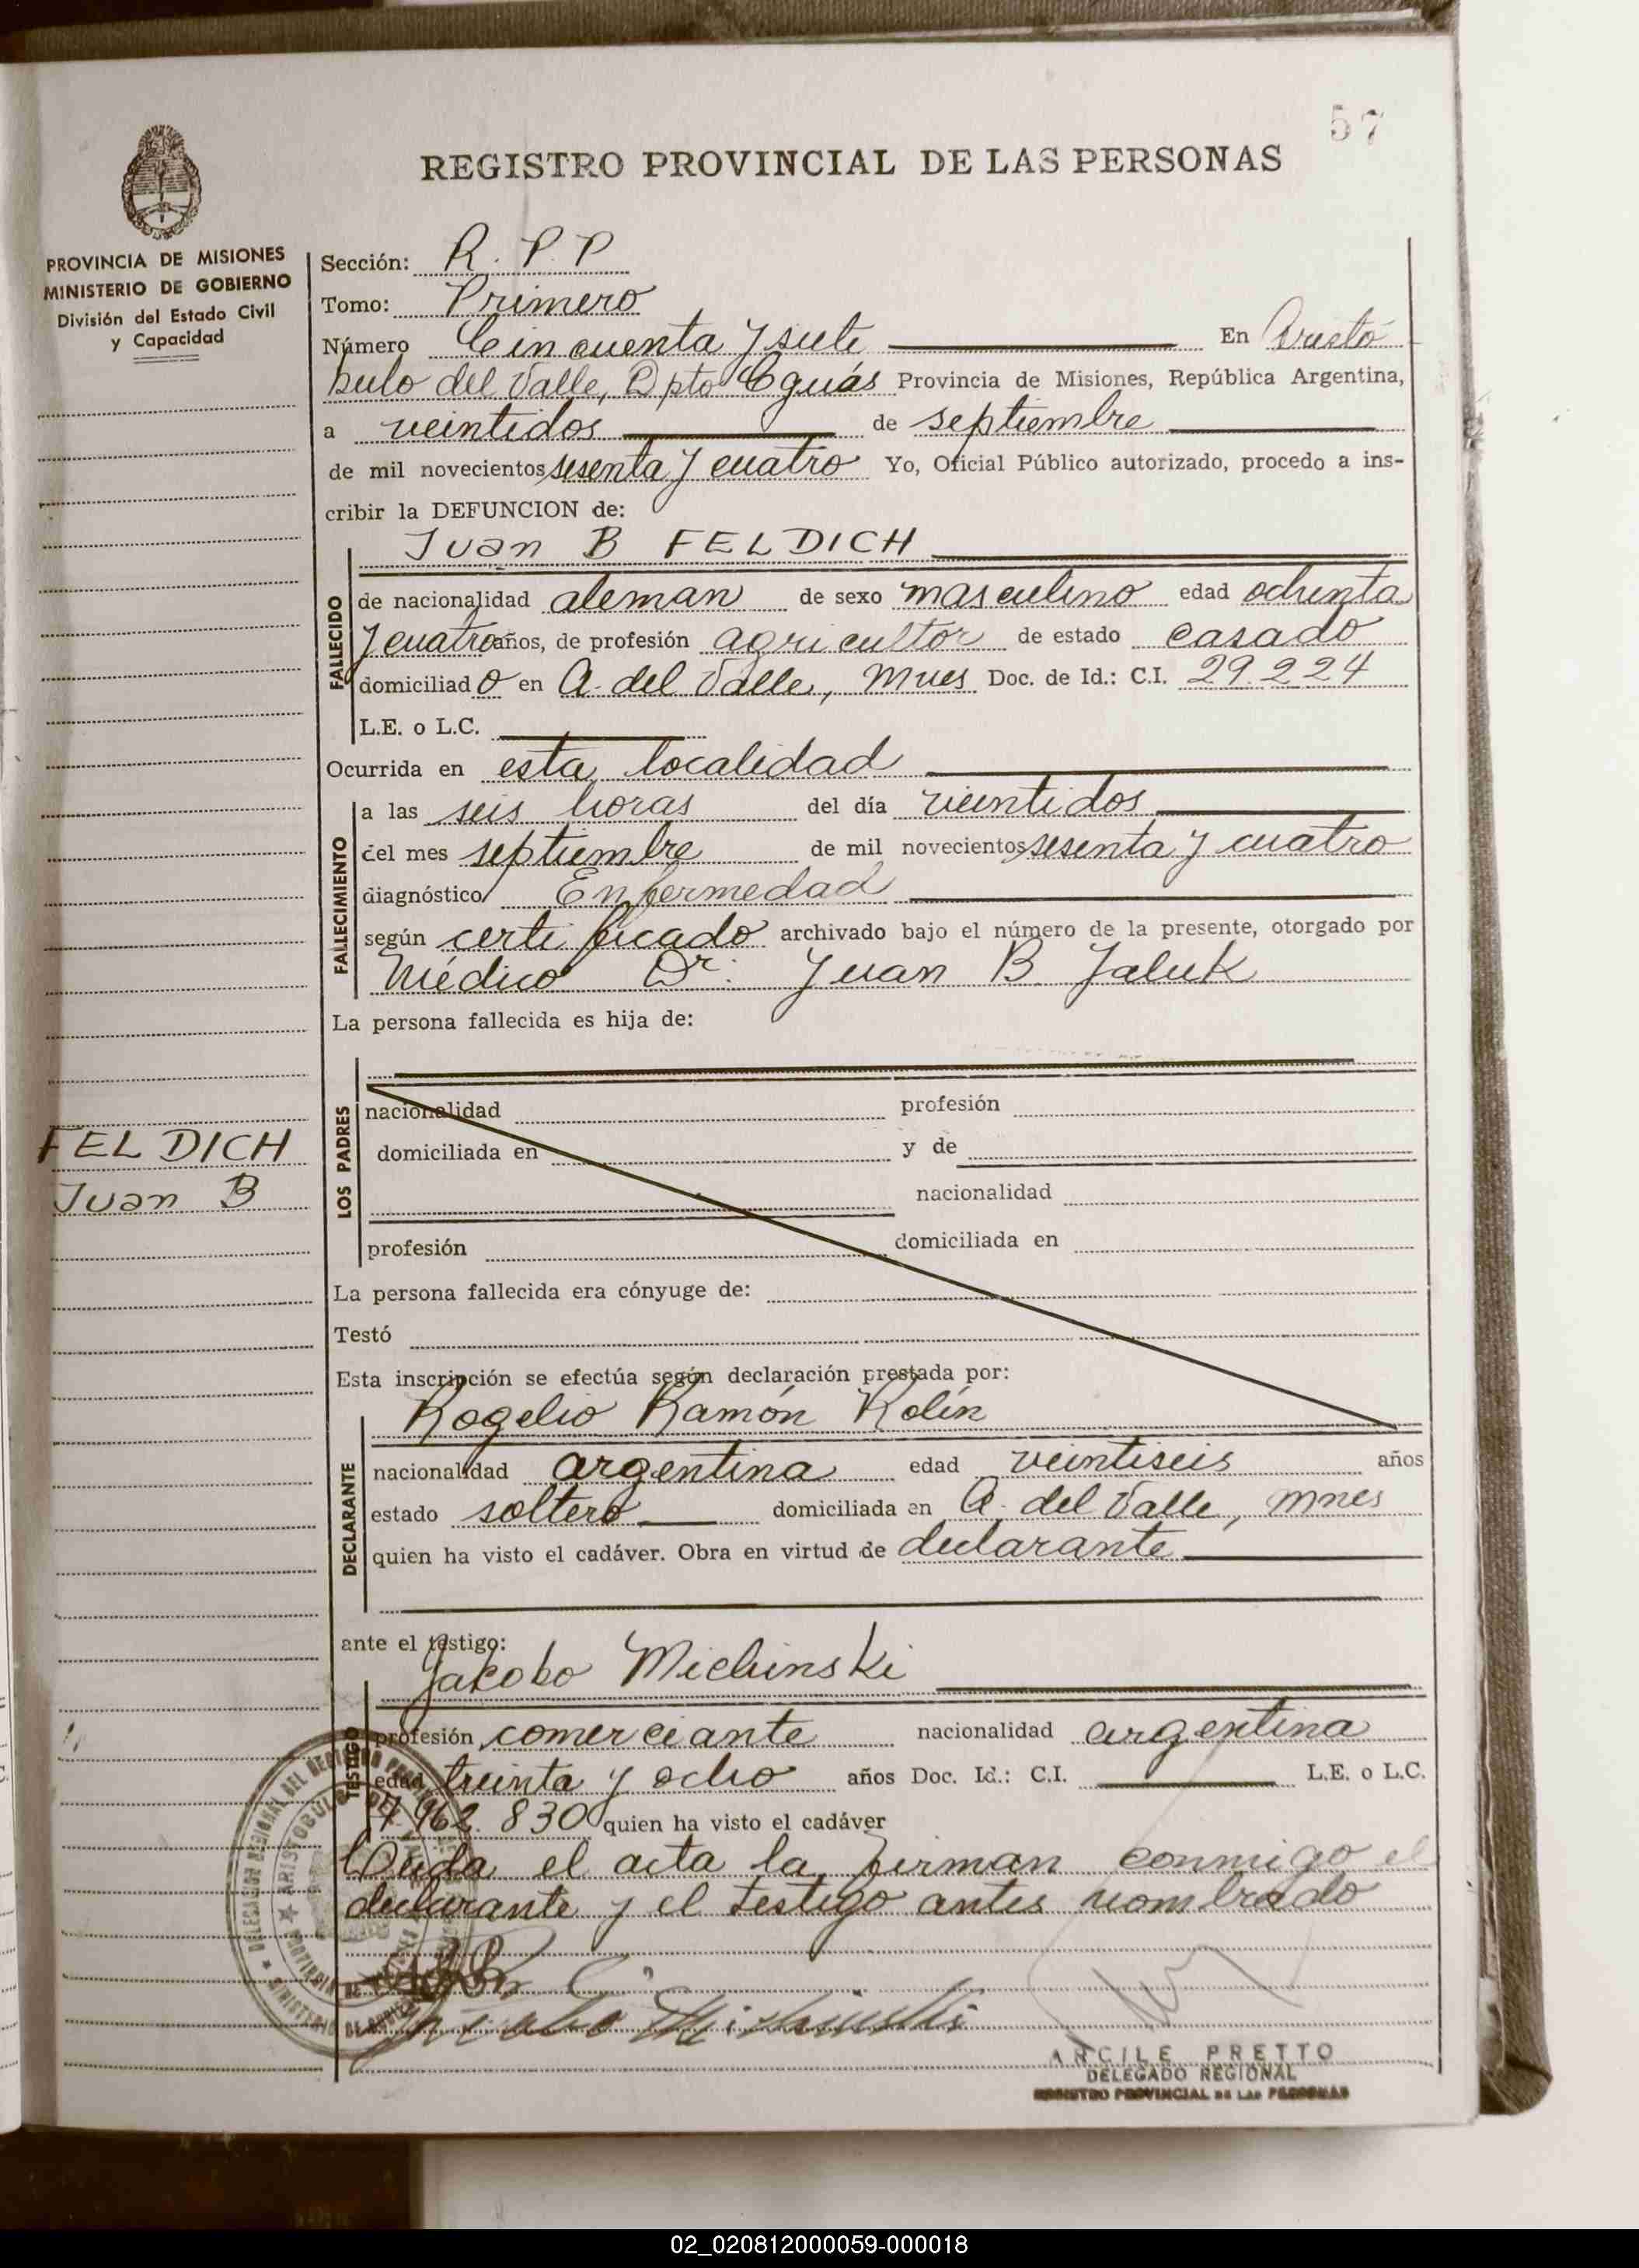 57
REGISTRO PROVINCIAL DE LAS PERSONAS
PROVINCIA DE MISIONES
MINISTERIO DE GOBIERNO
División del Estado Civil
y Capacidad
Sección: R. P. P
Tomo: Primero
Número Cincuenta y siete En Aristó
bulo del Valle, Dpto Cguás Provincia de Misiones, República Argentina,
a veintidos de septiembre
de mil novecientos sesenta y cuatro Yo, Oficial Público autorizado, procedo a ins-
cribir la DEFUNCION de:
Juan B FELDICH
FALLECIDO
de nacionalidad aleman de sexo masculino edad ochenta
y cuatro años, de profesión agricultor de estado casado
domiciliado en A. del Valle, Mnes Doc. de Id.: C.I. 29.224
L.E. o L.C.
Ocurrida en esta localidad
FALLECIMIENTO
a las seis horas del día veintidos
del mes septiembre de mil novecientos sesenta y cuatro
diagnóstico Enfermedad
según certificado archivado bajo el número de la presente, otorgado por
Médico Dr. Juan B. Jaluk
La persona fallecida es hija de:
LOS PADRES
nacionalidad profesión
domiciliada en y de
nacionalidad
profesión domiciliada en
FELDICH
Juan B
La persona fallecida era cónyuge de:
Testó
Esta inscripción se efectúa según declaración prestada por:
Rogelio Ramón Kolín
DECLARANTE
nacionalidad argentina edad veintiseis años
estado soltero domiciliada en A. del Valle, Mnes
quien ha visto el cadáver. Obra en virtud de declarante
ante el testigo:
Jakobo Michinski
TESTIGO
profesión comerciante nacionalidad argentina
edad treinta y ocho años Doc. Id.: C.I. L.E. o L.C.
7.962.830 quien ha visto el cadáver
Leída el acta la firman conmigo el
declarante y el testigo antes nombrado
DELEGACION REGIONAL DEL REGISTRO
ARISTOBULO DEL
PROVINCIA DE
MINISTERIO DE
ARCILE PRETTO
DELEGADO REGIONAL
REGISTRO PROVINCIAL DE LAS PERSONAS
02_020812000059-000018